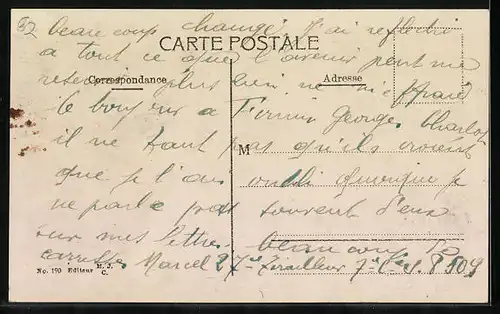 82
beaucoup changé j'ai réfléchi
CARTE POSTALE
a tout ce que l'avenir peut me
Correspondance
Adresse
plus rien ne
le bonjour a Firmin Georges Charlot
il ne faut pas qu'ils croient
M
que je l'ai oublié quoique je
ne parle pas souvent d'eux
sur mes lettres beaucoup de
caresses Marcel 27e Tirailleur 7e Cie S.P. 509
No. 190 Editeur M. J. C.